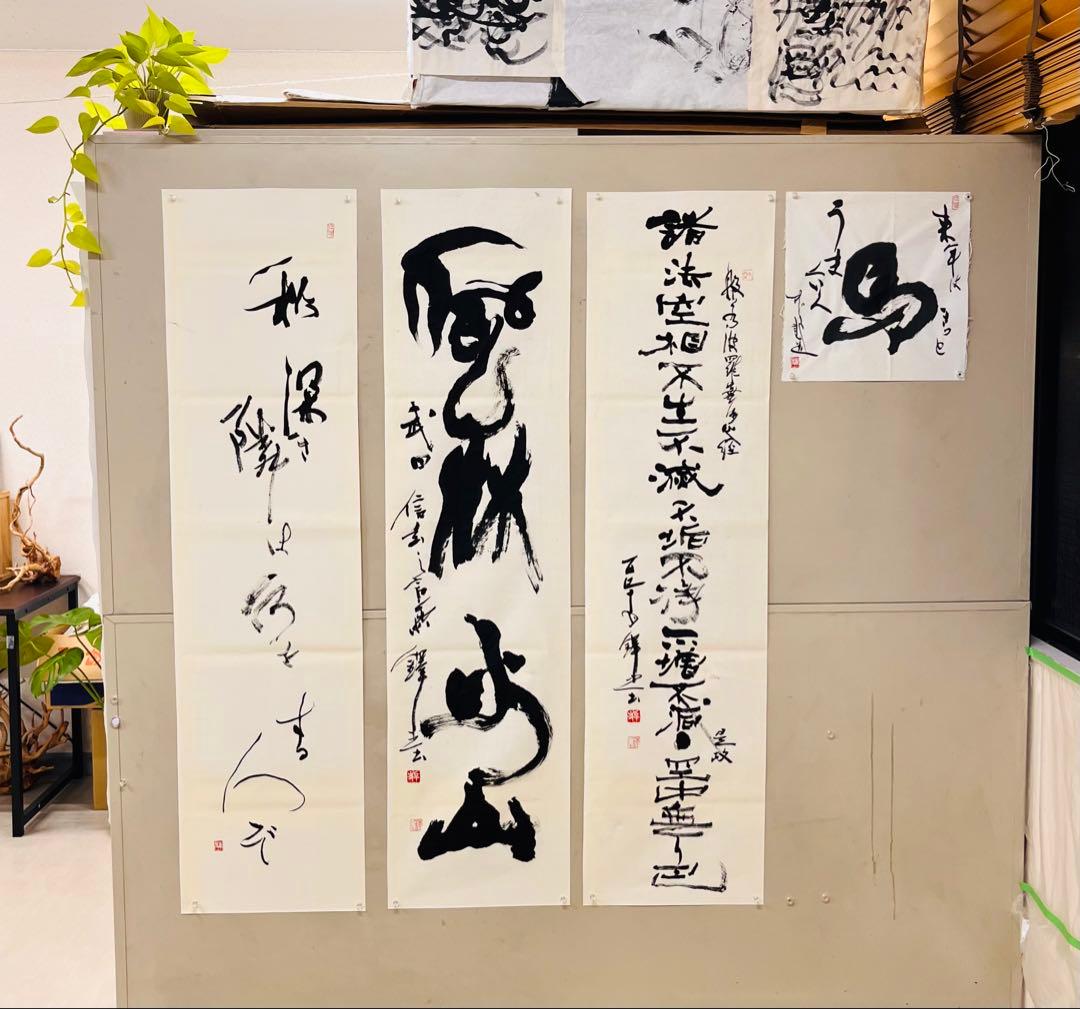 来年は
馬
うまくいく
般若波羅蜜多心経
諸法空相不生不滅不垢不浄不増不減
是故
空中無色
風林火山
武田信玄之言葉
秋深き
隣は何を
する人ぞ